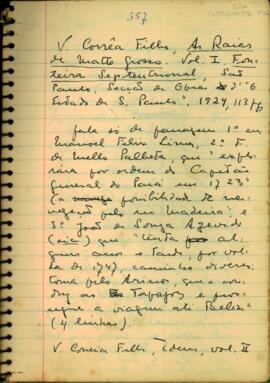 357
V. Corrêa Filho, As Raias
de Matto Grosso. Vol. I, Fron-
teira Septentrional, São
Paulo, Secção de Obras d' "O
Estado de S. Paulo", 1924, 113 pg
Fala só de passagem 1º em
Manoel Felix Lima, 2º F.
de Mello Palheta, que "explo-
rára por ordem do Capitão
General do Pará em 1723"
(a possibilidade de na-
vegação pelo rio Madeira; e
3º João de Souza Azevedo
(sic) que "tenta al-
guns annos + tarde, por vol-
ta de 1747, caminho diverso:
toma pelo Arinos, que o con-
duz ao Tapajoz e pros-
segue a viagem até Belém"
(4 linhas).
V. Corrêa Filho, idem, vol. II